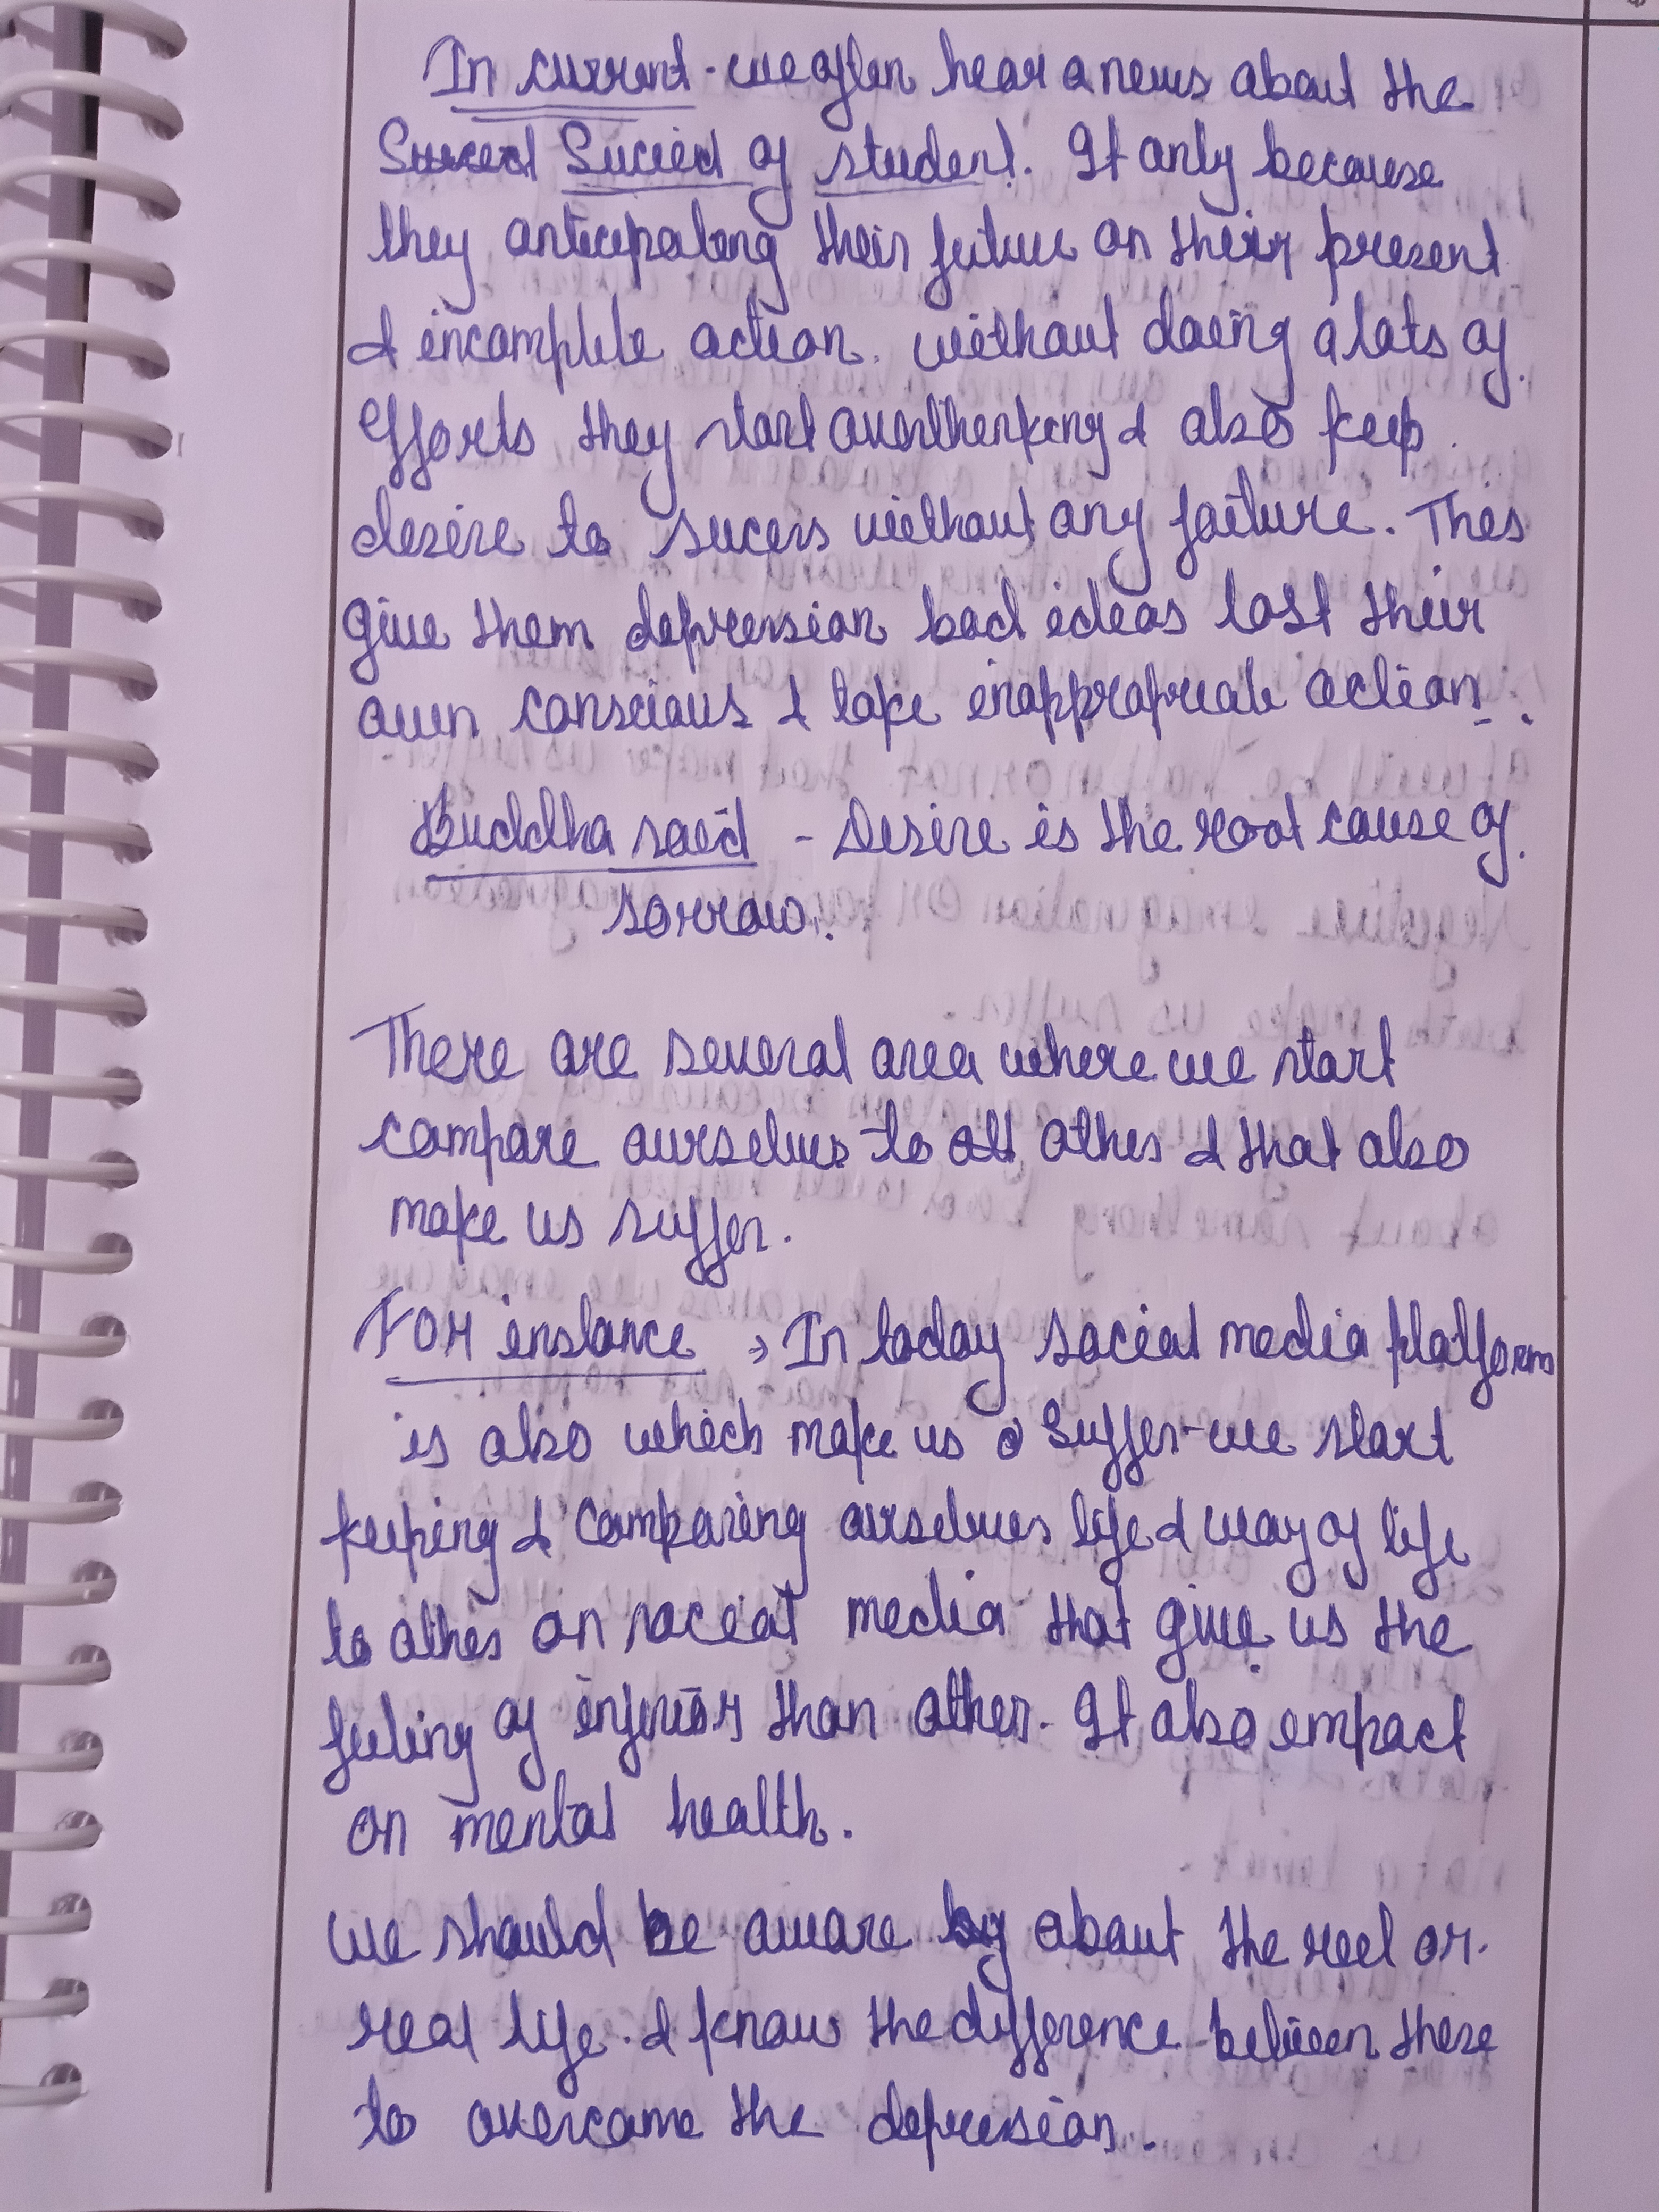 In current - we often hear a news about the
Sucied of student. It only because
they anticepating their future on their present
& incomplete action. without doing a lots of
Efforts they start overthenking & also keep
desire to sucess without any failure. This
give them depression bad ideas lost their
own conscious & take inappropreate action.
Buddha said - Desire is the root cause of
sorrow.
There are several area where we start
compare ourselves to othes & that also
make us suffer.
For instance → In today social media platform
is also which make us suffer - we start
keeping & Comparing ourselves life & way of life
to othes on social media that give us the
feeling of inferior than other. It also empact
on mental health.
we should be aware about the reel or
real life. & know the difference between these
to overcome the depression.